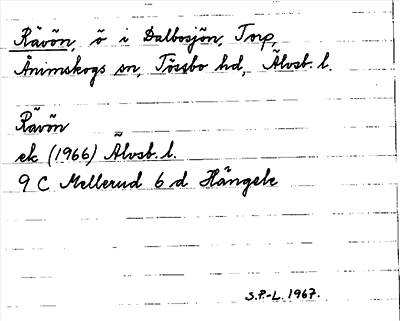 Rävön, ö i Dalbosjön, Torp,
Ånimskogs sn, Tössbo hd, Älvsb. l.
Rävön
ek (1966) Älvsb. l.
9 C Mellerud 6 d Hängele
S.P.-L. 1967.